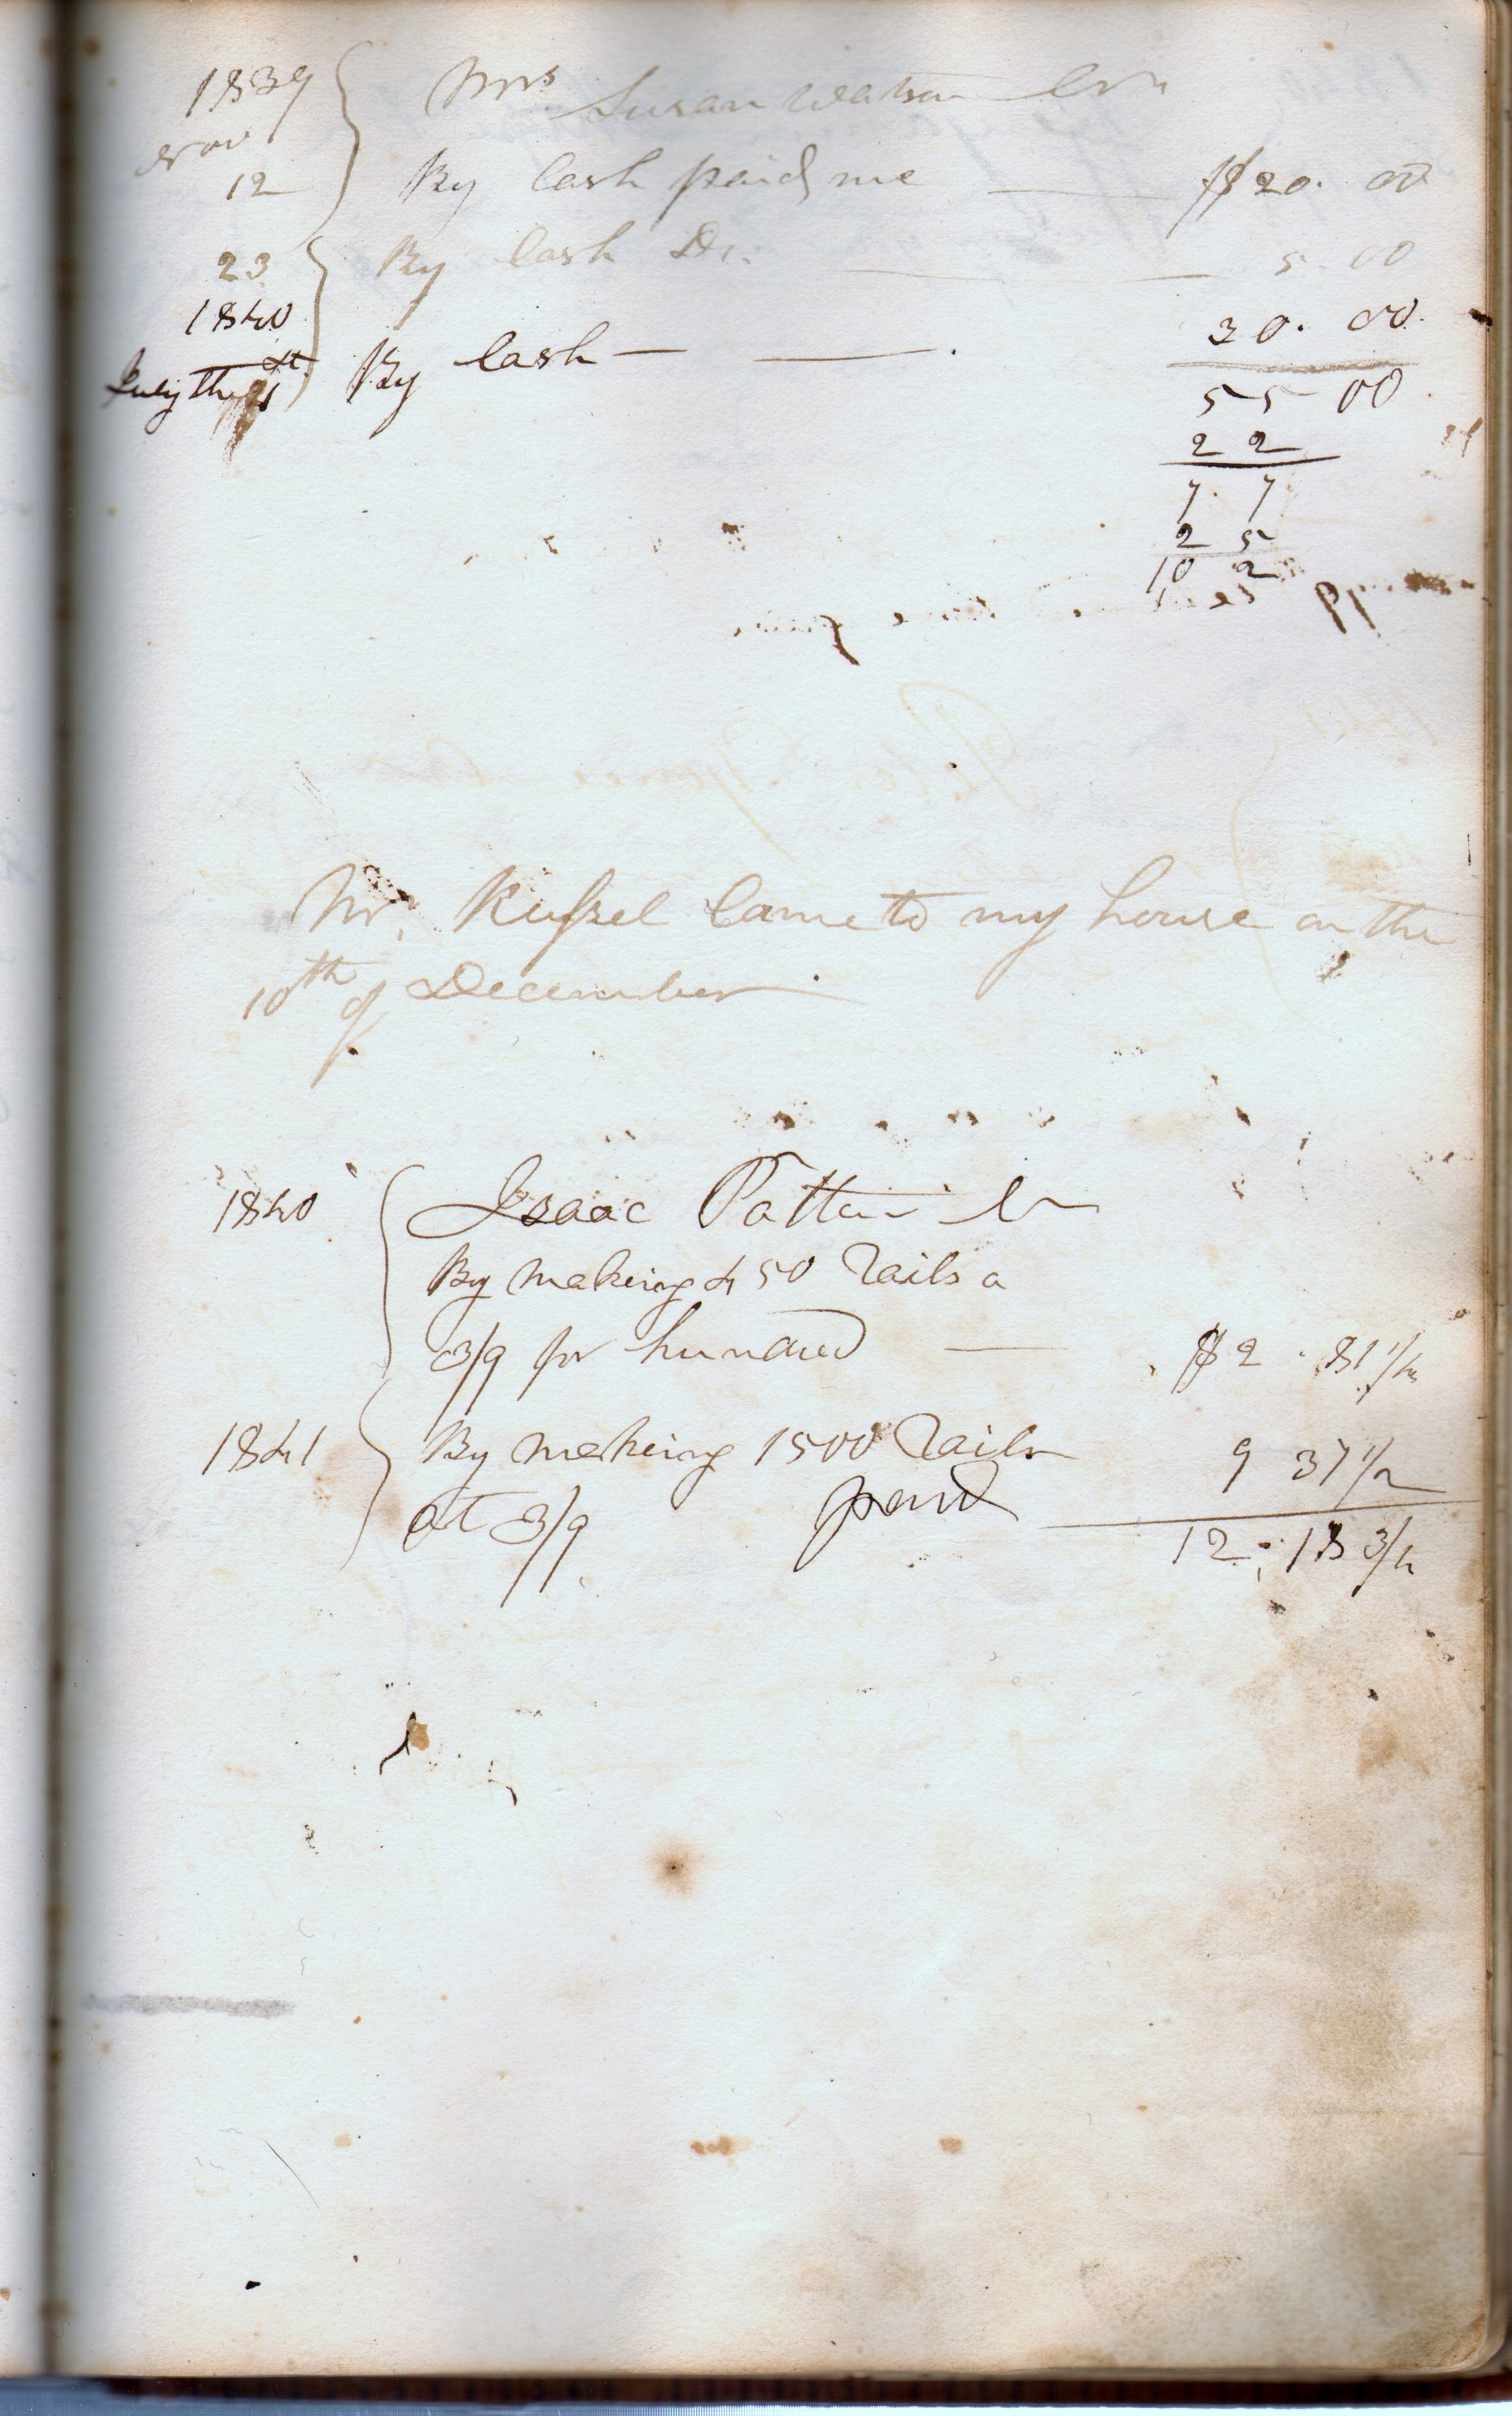 1839 Mrs Susan Watson Cr
Nov
12 By Cash paid me $20. 00
23 By Cash Do. 5. 00
1840 30. 00
July the By Cash
55 00
22
7. 7
25
10 2
Mr. Rufsel Came to my house on the
10th of December
1840 Isaac Patten Cr
By making 450 Rails a
3/9 for hundred $2. 81 1/4
1841 By making 1500 Rails 9 37 1/2
at 3/9 paid
12. 18 3/4